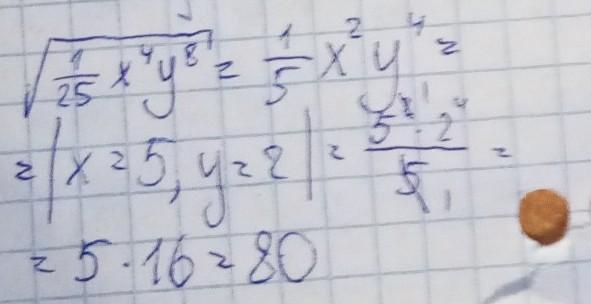 √(1/25 x⁴y⁸) = 1/5 x²y⁴ =
= | x = 5, y = 2 | = (5²¹ · 2⁴)/5₁ =
= 5 · 16 = 80